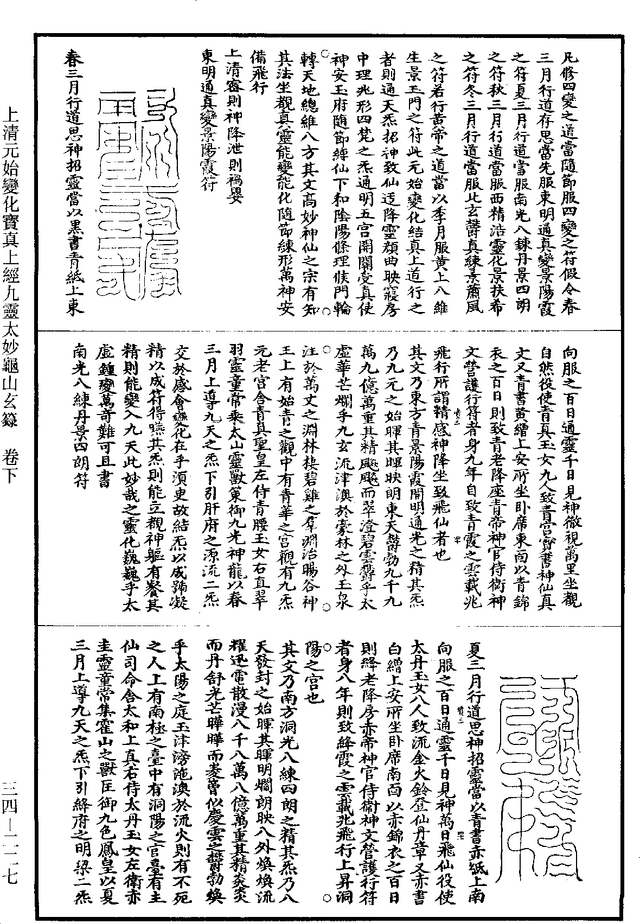 凡修四變之道當隨節服四變之符假令春
三月行道存思當先服東明通真變景陽霞
之符夏三月行道當服南光八鍊丹景四朗
之符秋三月行道當服西精浩靈化景扶希
之符冬三月行道當服北玄鬱真練景蕭風
之符若行黃帝之道當以季月服黃上八維
生景玉門之符此元始變化結真上道行之
者則通天炁招神致仙迂降靈顏曲映寢房
中理兆形四梵之炁通明五宮開關受真使
神安玉府隨節緯仙下和陰陽條理候門輪
轉天地總維八方其文高妙神仙之宗有知
其法坐觀真靈能變能化隨節練形萬神安
備飛行
上清審則神降泄則禍嬰
東明通真變景陽霞符
春三月行道思神招靈當以黑書青紙上東
向服之百日通靈千日見神微視萬里坐觀
自然役使青真玉女九人致青宮寶書神仙真
文又青書黃繒上安所坐卧席東向以青錦
衣之百日則致青老降座青帝神官侍衛神
文營護行符者身九年自致青霞之雲載兆
飛行所謂精感神降坐致飛仙者也
其文乃東方青景陽霞開明通光之精其炁
乃九元之始暉其暉映朗東天鬱勃九千九
萬九億萬重其精颷颷而翠澄碧雲鬱乎太
虛華芒爛乎九玄流津澳於豪林之外玉泉
注於萬丈之淵林棲碧雞之羣淵治暘谷神
王上有始青之觀中有青華之宮觀有九炁
元老宮合青真聖皇左侍青腰玉女右直翠
羽靈童常乘太山靈獸策御九光神龍以春
三月上導九天之炁下引肝府之源流二炁
交於處會龜花在乎須臾故結炁以成歸凝
精以成符得嚥其炁則能立觀神軀有餐其
精則能變入九天此妙哉之靈化巍巍乎太
虛鍾變萬奇難可且書
南光八練丹景四朗符
夏三月行道思神招靈當以青書赤紙上南
向服之百日通靈千日見神萬日飛仙役使
太丹玉女八人致流金火鈴登仙丹章文赤書
白繒上安所坐卧席南向以赤錦衣之百日
則絳老降房赤帝神官侍衛神文營護行符
者身八年則致絳霞之雲載兆飛行上昇洞
陽之宮也
其文乃南方洞光八練四朗之精其炁乃八
天發封之始暉其暉明爛朗映八外煥煥流
耀迅電散漫八千八萬八億萬重其精炎炎
而丹舒光芒曄曄而麥當似慶雲之鬱勃煥
乎太陽之庭玉津滂沲澳於流火則有不死
之人上有南極之臺中有洞陽之宮臺有主
仙司命含太和上真右侍太丹玉女左衛赤
圭靈童常集霍山之獸匡御九色鳳皇以夏
三月上導九天之炁下引絳府之明梁二炁
上清元始變化寶真上經九靈太妙龜山玄籙　卷下
三四—二二七